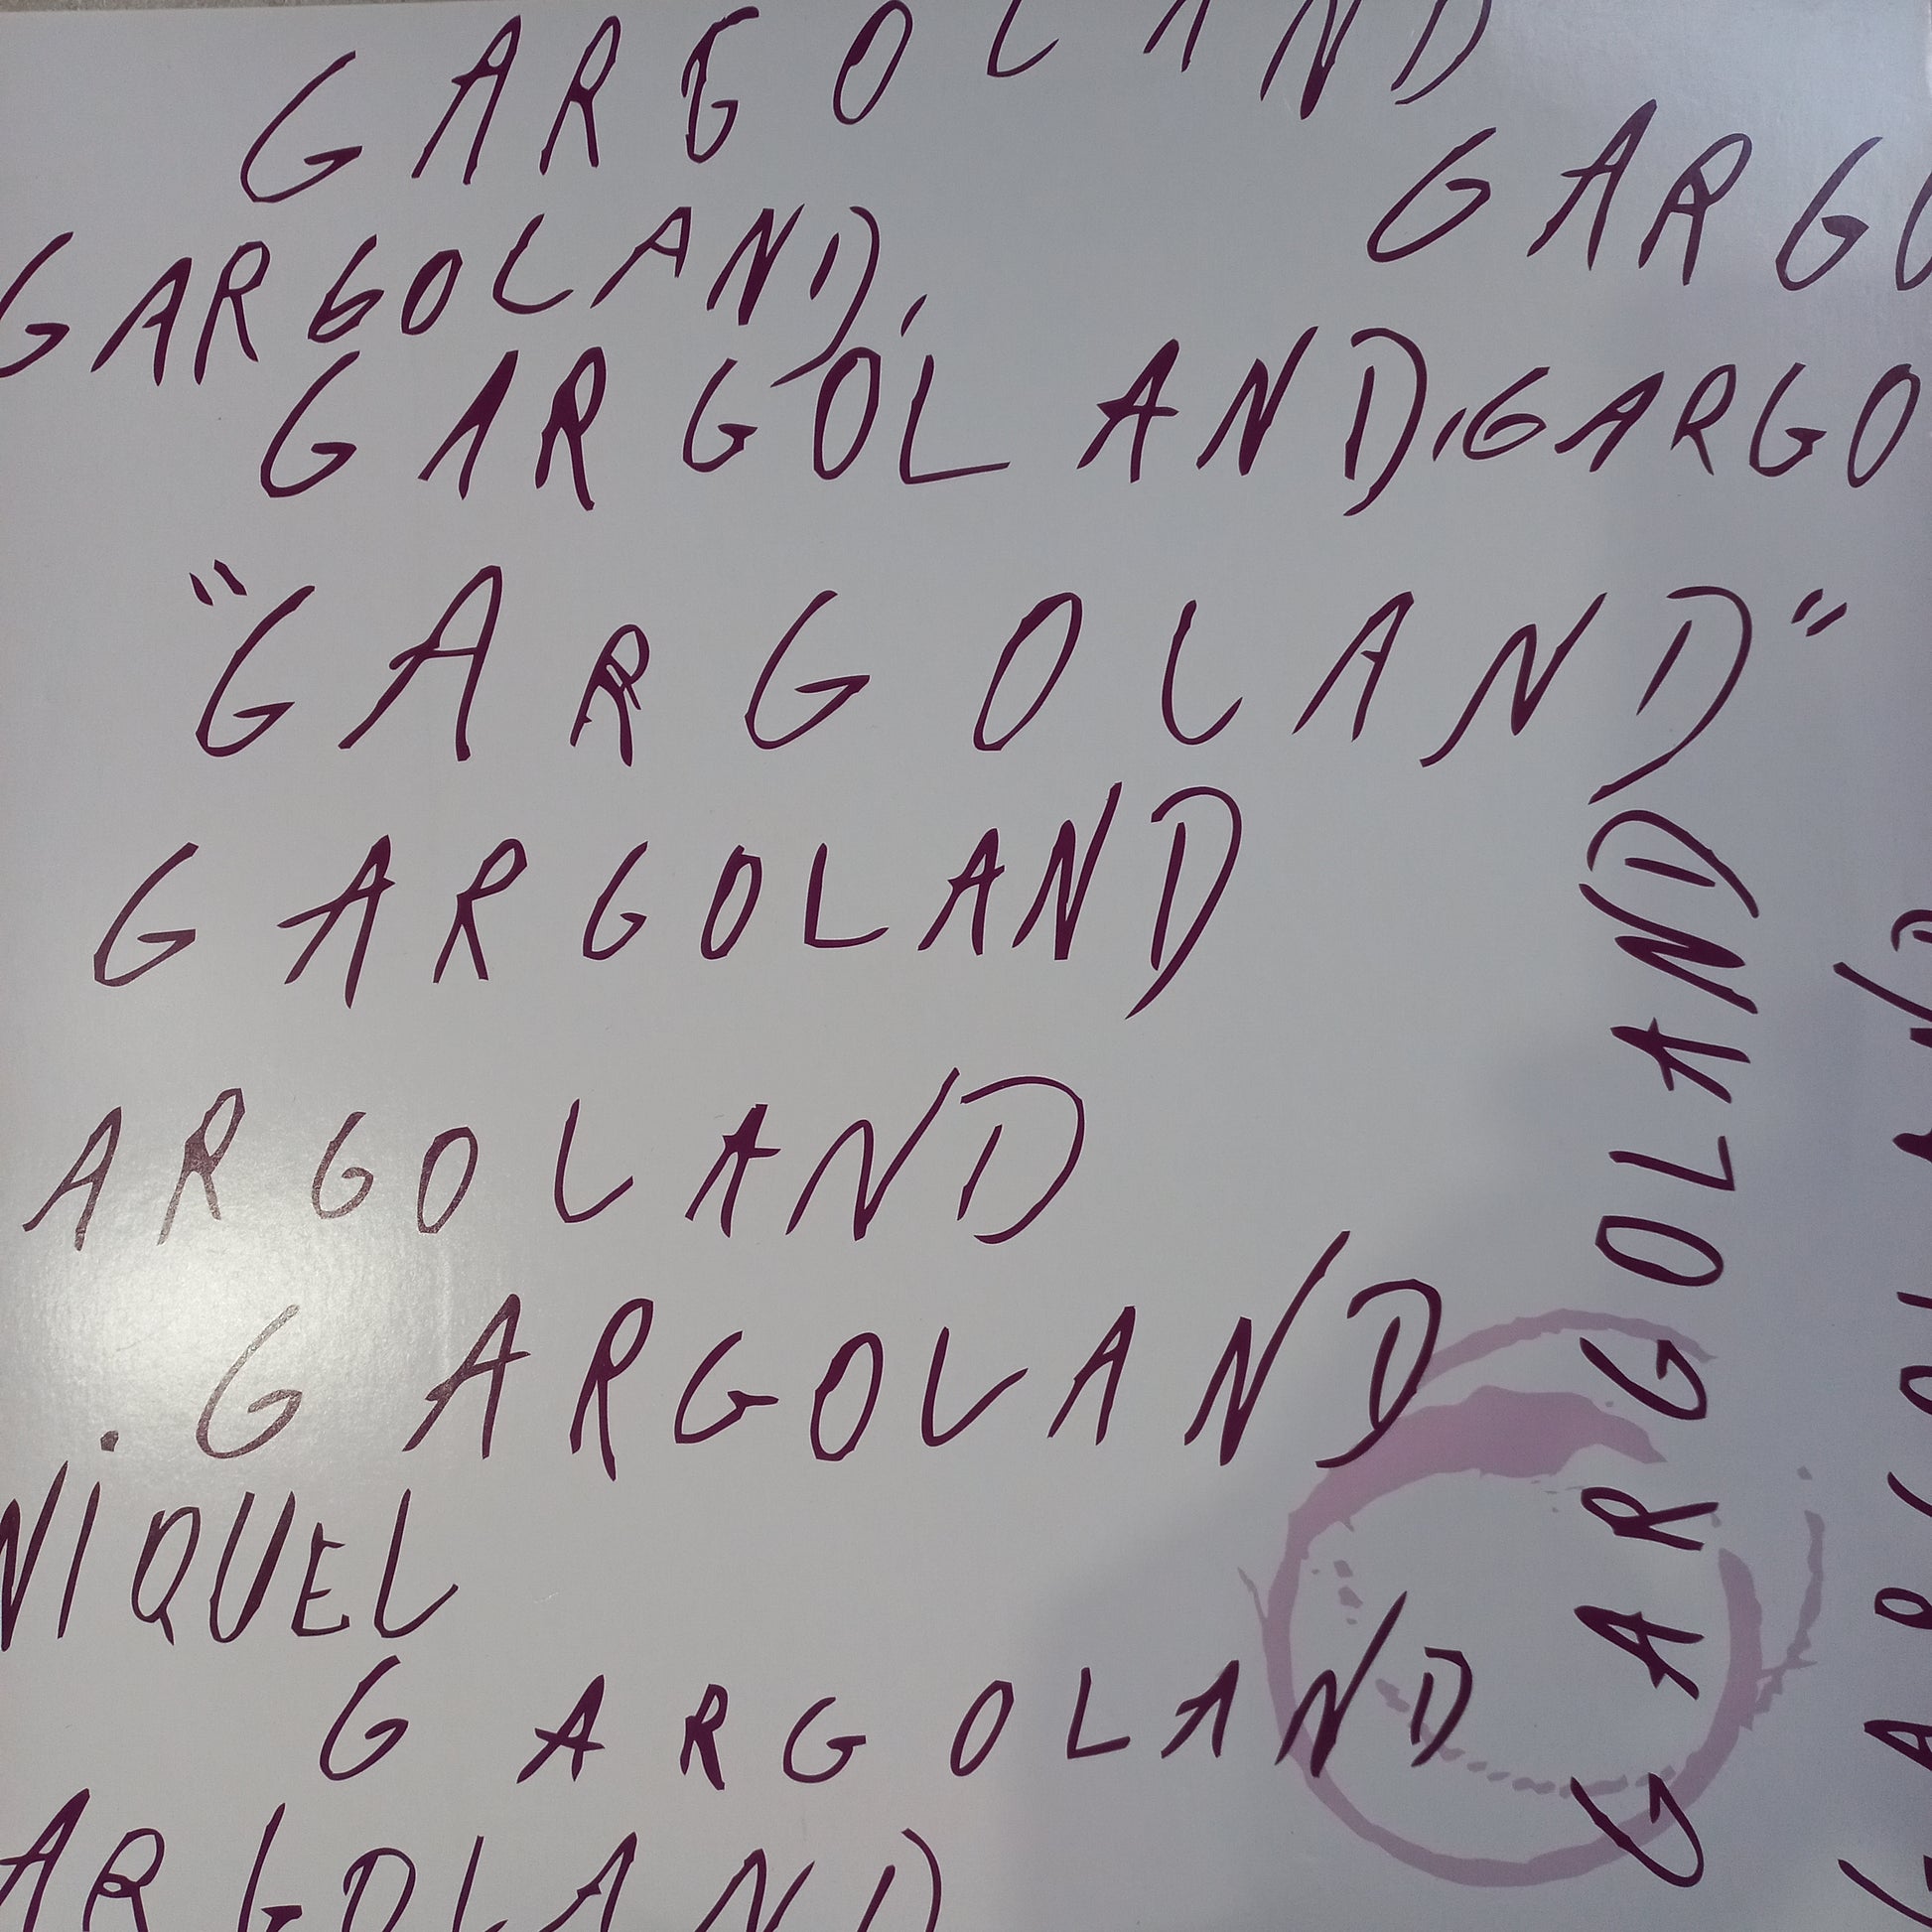 GARGOLAND
GARGO
GARGOLAND,
GARGOLAND, GARGO
"GARGOLAND"
GARGOLAND
ARGOLAND
. GARGOLAND
NIQUEL
GARGOLAND
ARGOLAND
GARGOLAND
GARGOLAND